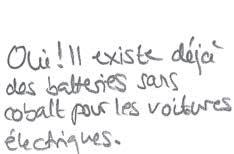 Oui! Il existe déjà
des batteries sans
cobalt pour les voitures
électriques.